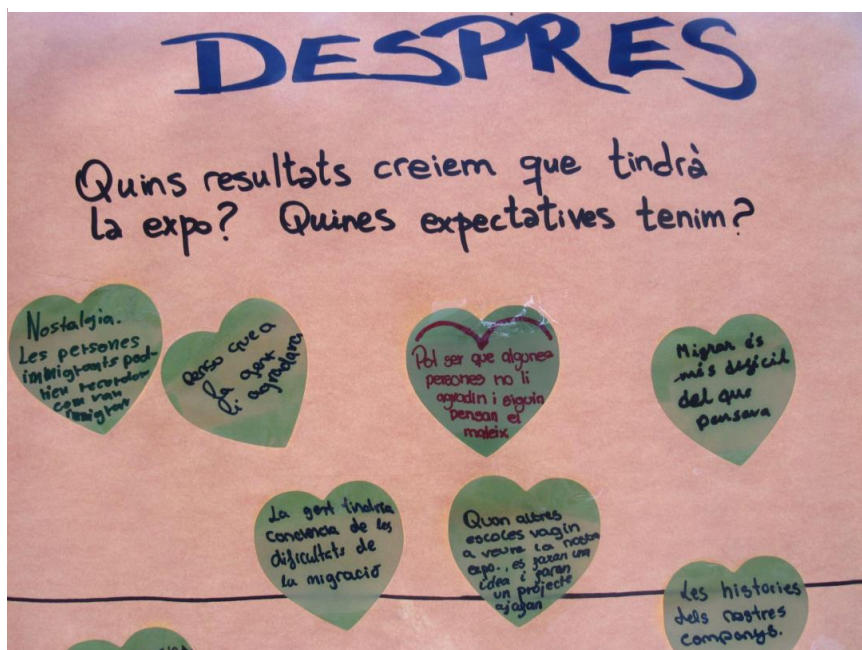 DESPRES
Quins resultats creiem que tindrà
la expo? Quines expectatives tenim?
Nostalgia.
Les persones
immigrants pod-
rieu recordar
com van
immigrar
Penso que a
la gent
li agradara
Pot ser que algunes
persones no li
agradin i siguin
pensan el
mateix
Migrar és
més difícil
del que
pensava
La gent tindria
conciencia de les
dificultats de
la migració
Quan altres
escoles vagin
a veure la nostra
expo., es faran una
idea i faran
un projecte
Les histories
dels nostres
companys.